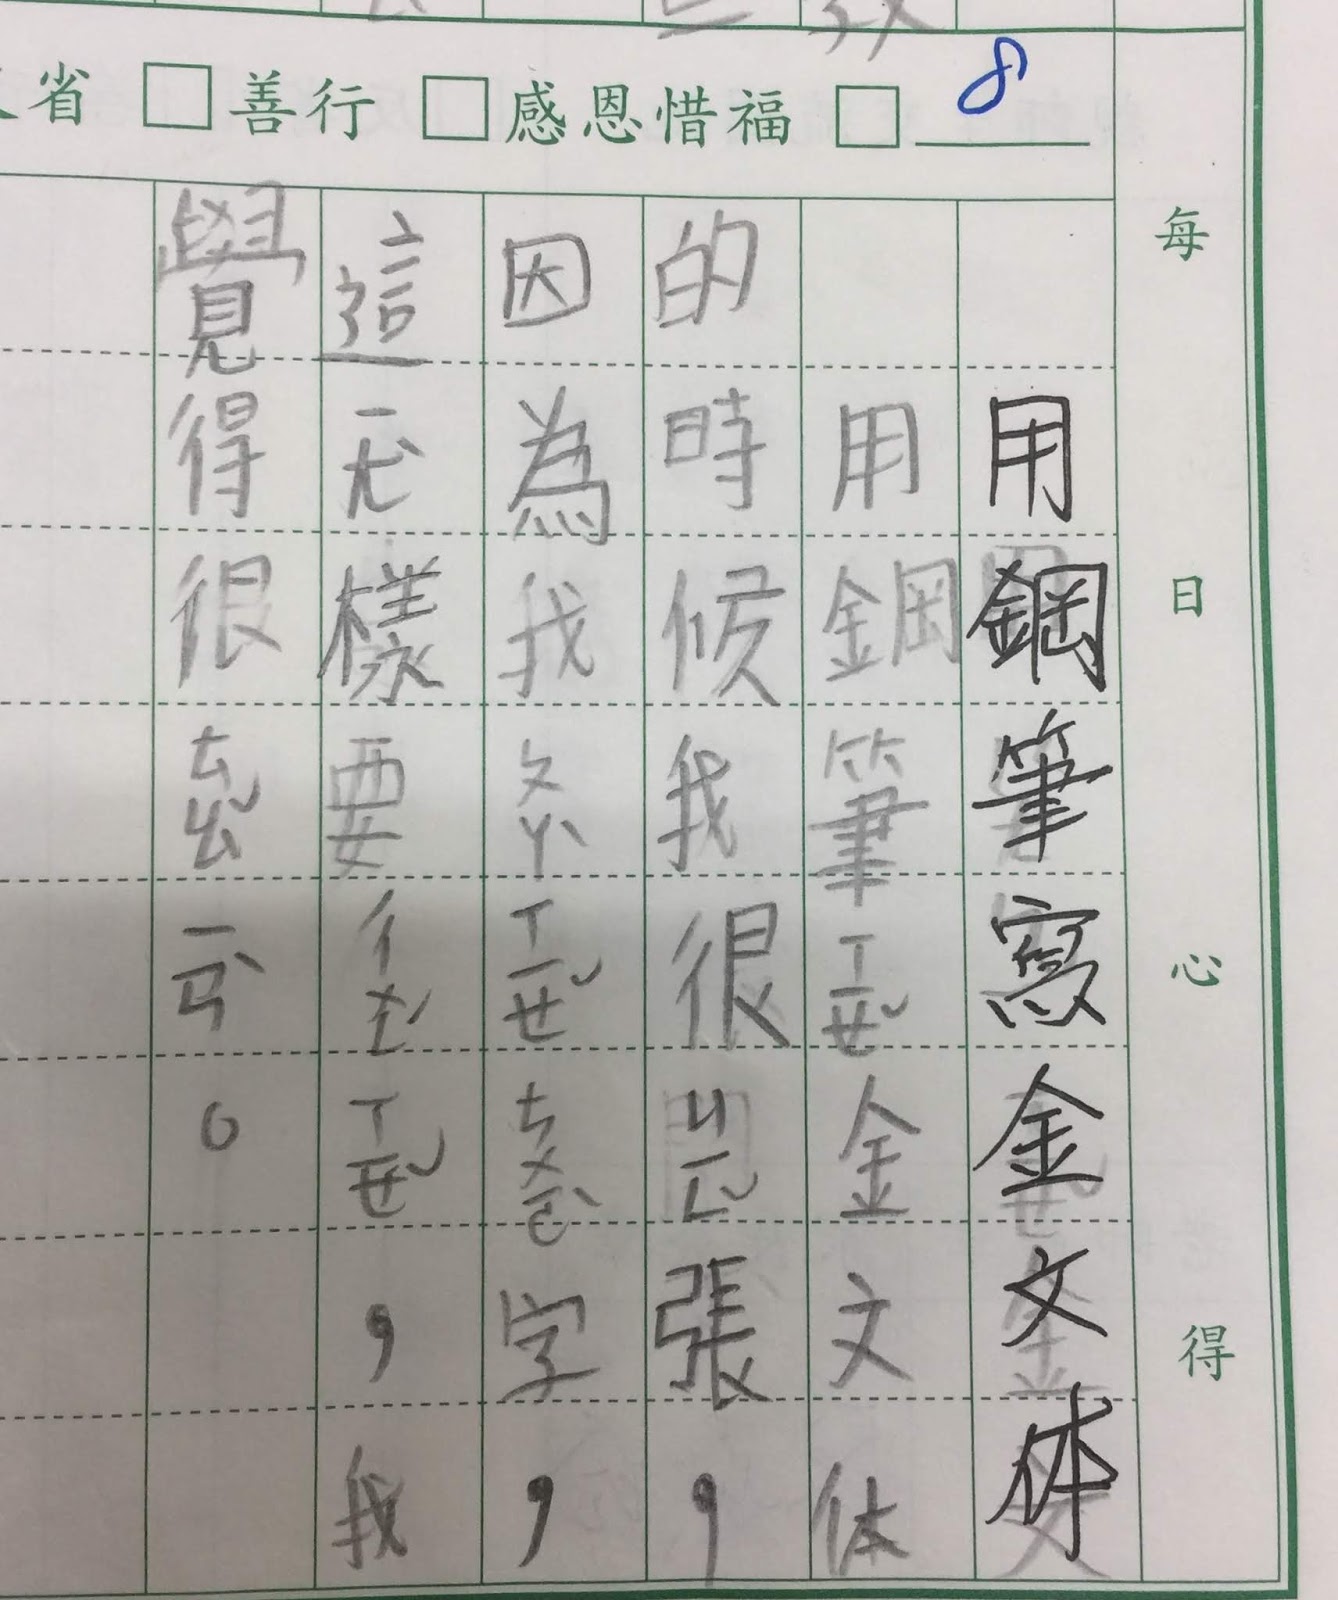 省 □善行 □感恩惜福 □ 8
每日心得
用鋼筆寫金文体
用鋼筆ㄒㄧㄝˇ金文体
的時候我很ㄐㄧㄣˇ張，
因為我ㄆㄚˋㄒㄧㄝˇㄘㄨㄛˋ字，
這ㄧㄤˋ樣要ㄔㄨㄥˊㄒㄧㄝˇ，我
覺得很ㄊㄠˇㄧㄢˋ。